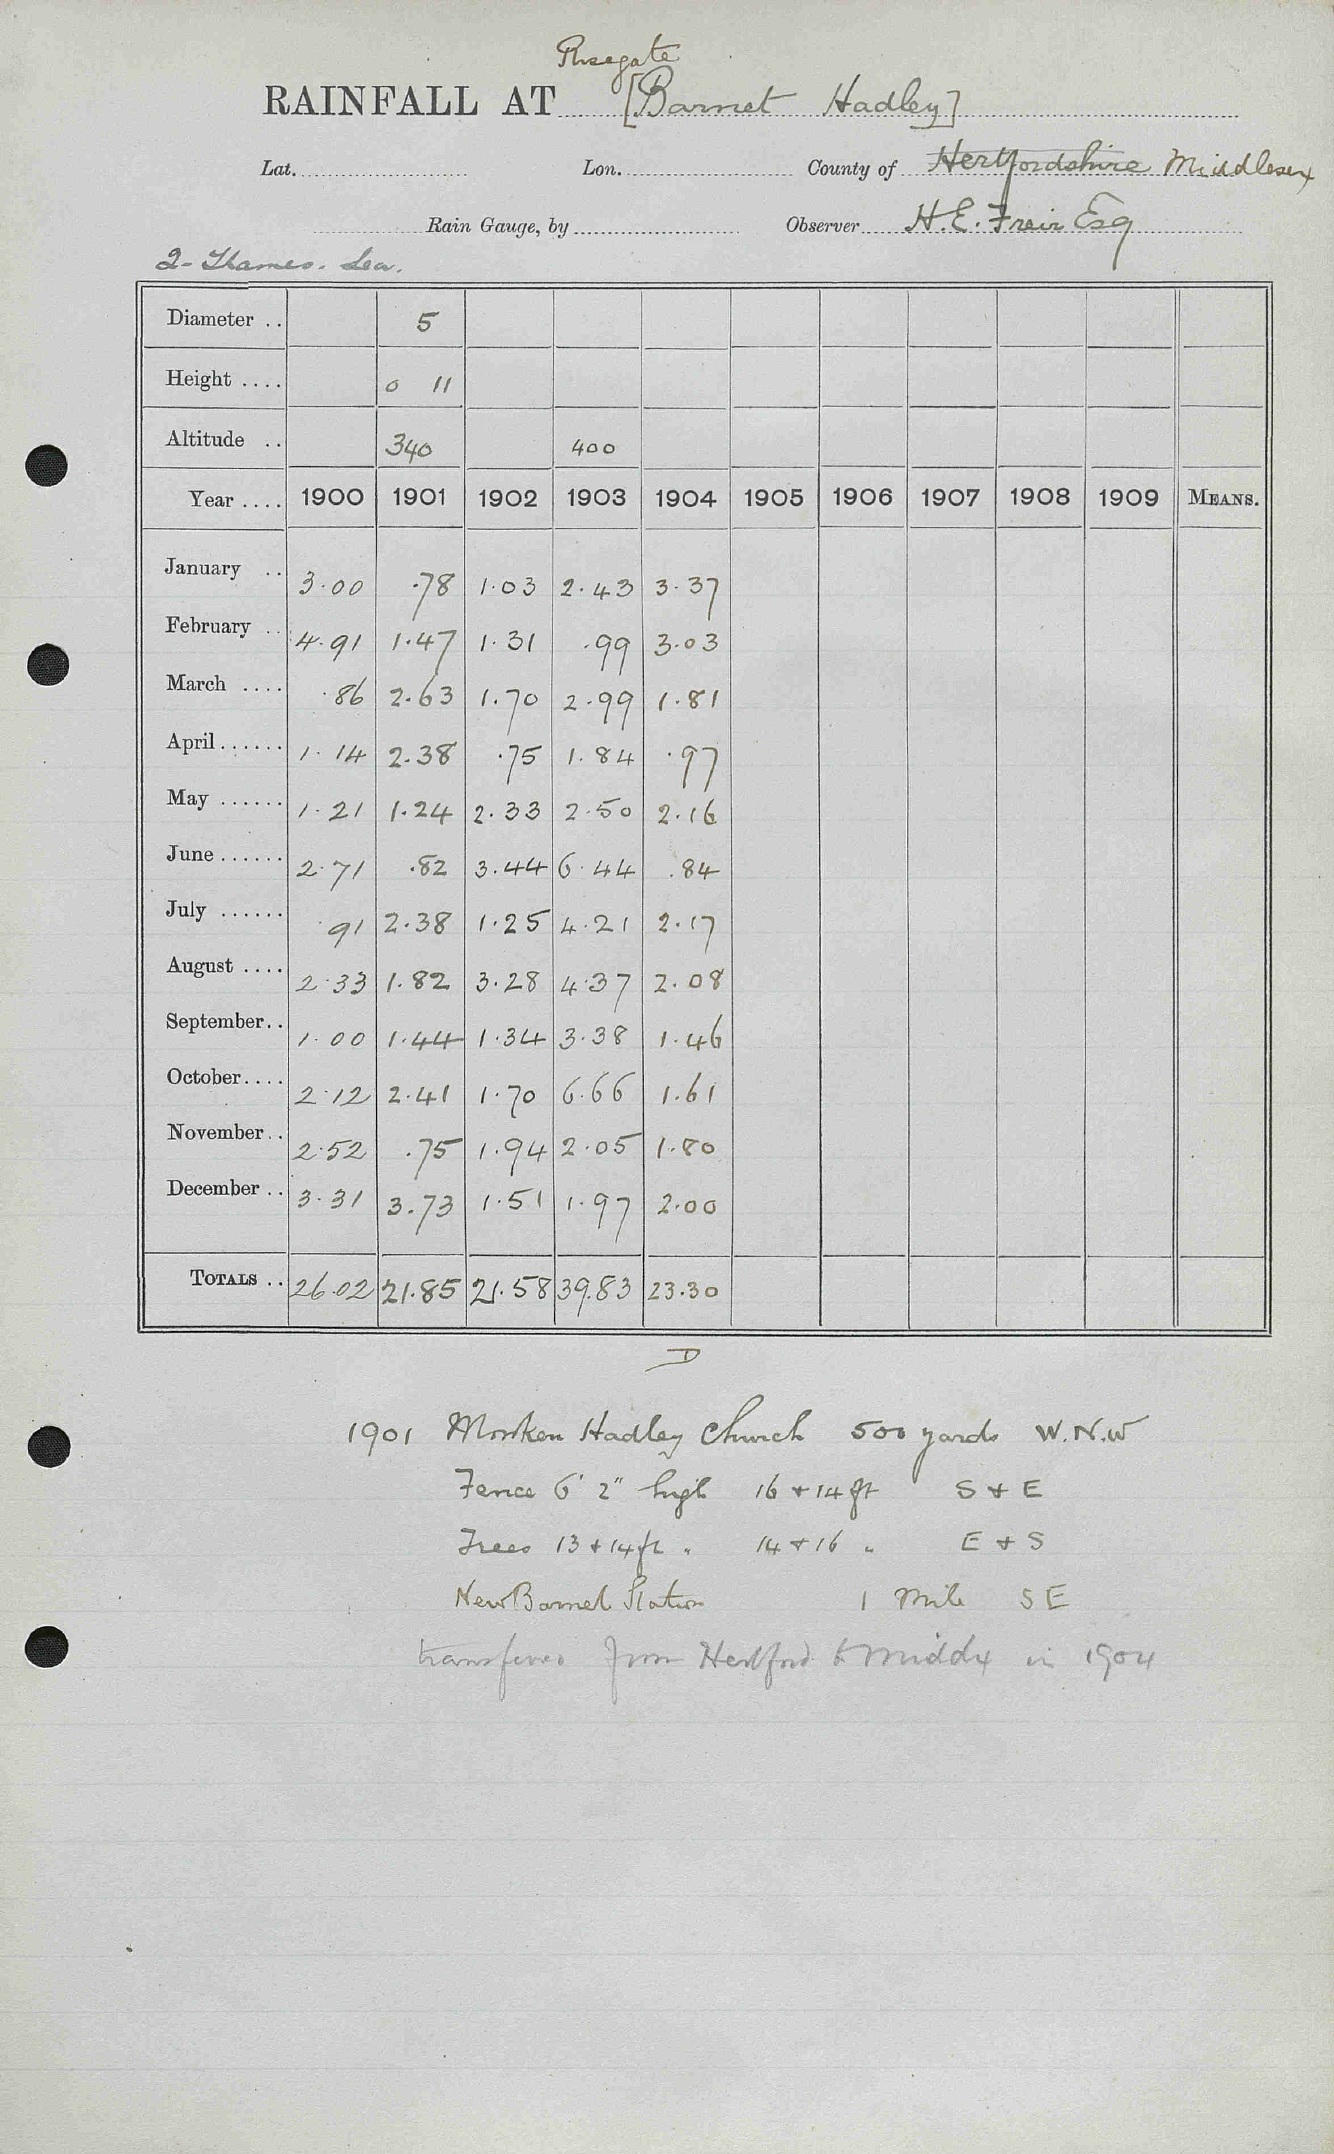 Rosegate
RAINFALL AT [Barnet Hadley]
Lat. Lon. County of Hertfordshire Middlesex
Rain Gauge, by Observer H.E. Freir Esq
2- Thames. Lea.
Diameter .. 5
Height .... 0 11
Altitude .. 340 400
Year .... 1900 1901 1902 1903 1904 1905 1906 1907 1908 1909 MEANS.
January .. 3.00 .78 1.03 2.43 3.37
February .. 4.91 1.47 1.31 .99 3.03
March .... .86 2.63 1.70 2.99 1.81
April ...... 1.14 2.38 .75 1.84 .97
May ...... 1.21 1.24 2.33 2.50 2.16
June ...... 2.71 .82 3.44 6.44 .84
July ...... .91 2.38 1.25 4.21 2.17
August .... 2.33 1.82 3.28 4.37 2.08
September.. 1.00 1.44 1.34 3.38 1.46
October.... 2.12 2.41 1.70 6.66 1.61
November.. 2.52 .75 1.94 2.05 1.80
December .. 3.31 3.73 1.51 1.97 2.00
TOTALS .. 26.02 21.85 21.58 39.83 23.30
D
1901 Monken Hadley Church 500 yards W.N.W
Fence 6' 2" high 16 + 14 ft S + E
Trees 13 + 14 ft " 14 + 16 " E + S
New Barnet Station 1 Mile SE
transferred from Hertford to Middx in 1904